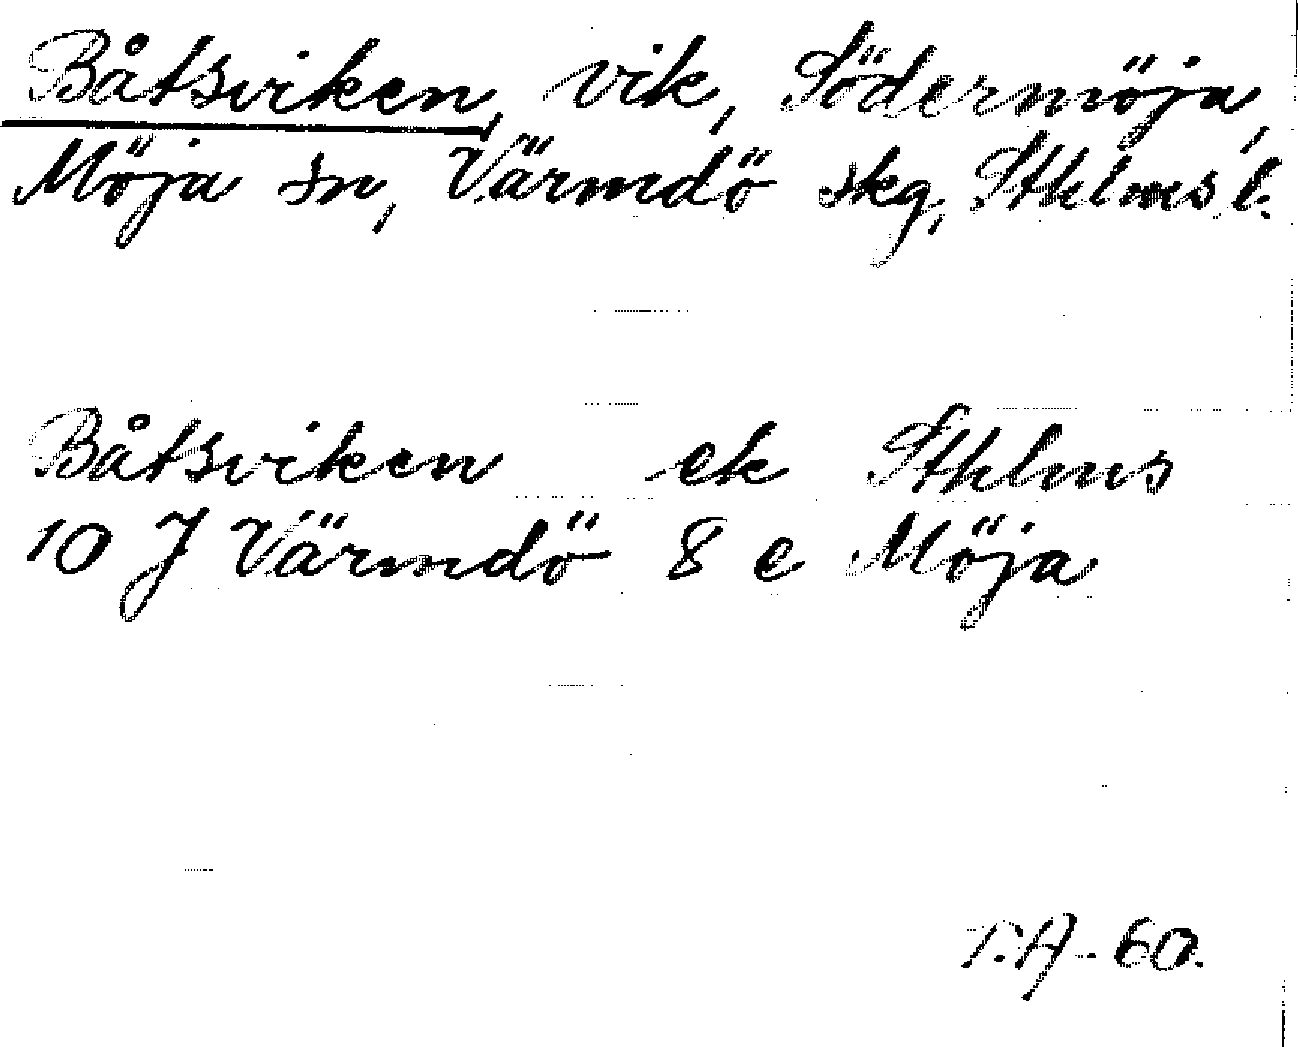 Båtsviken, vik, Södermöja,
Möja sn, Värmdö skg, Sthlms l.
Båtsviken ek Sthlms
10 J Värmdö 8 e Möja
T.A. 60.